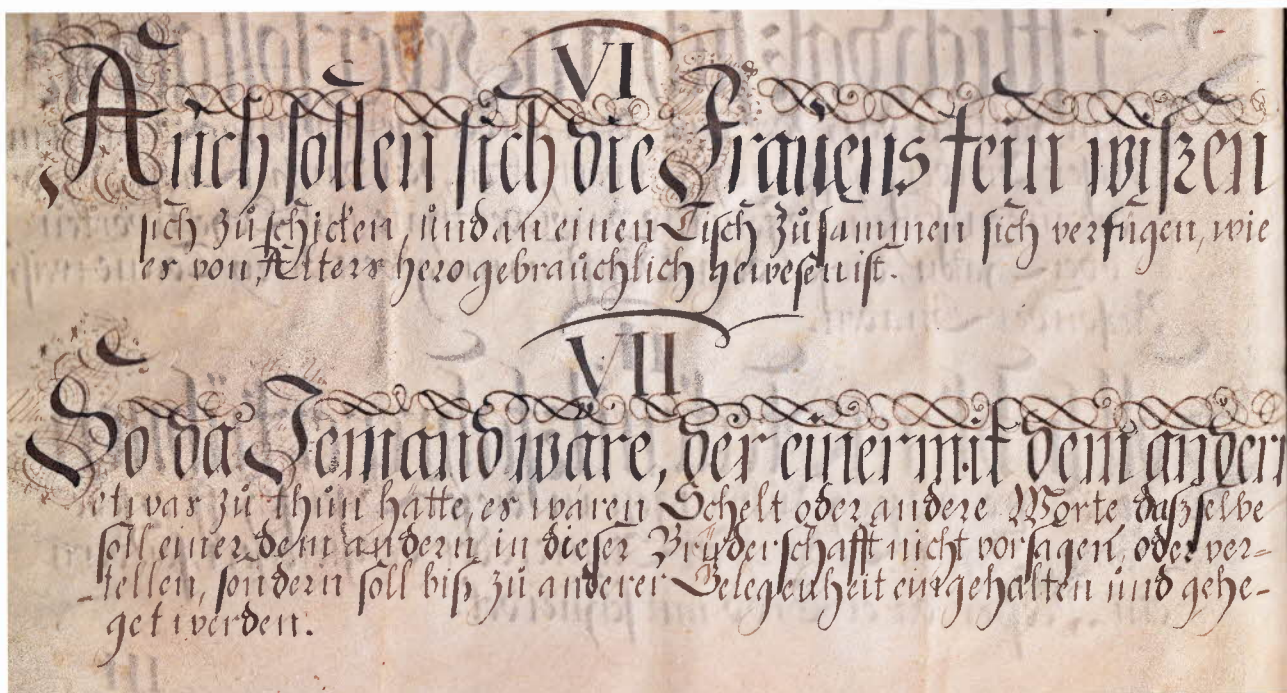 VI
Auch sollen sich die Frauens fein wißen
sich zu schicken, und an einen Tisch zusammen sich verfügen, wie
es von Alters hero gebrauchlich gewesen ist.
VII
So da Jemand ware, der einer mit dem andern
etwas zu thun hatte, es waren Schelt oder andere Worte, daßselbe
soll einer dem andern in dieser Brüderschafft nicht vorsagen, oder ver-
stellen, sondern soll biß zu anderer Gelegenheit eingehalten und gehe-
get werden.